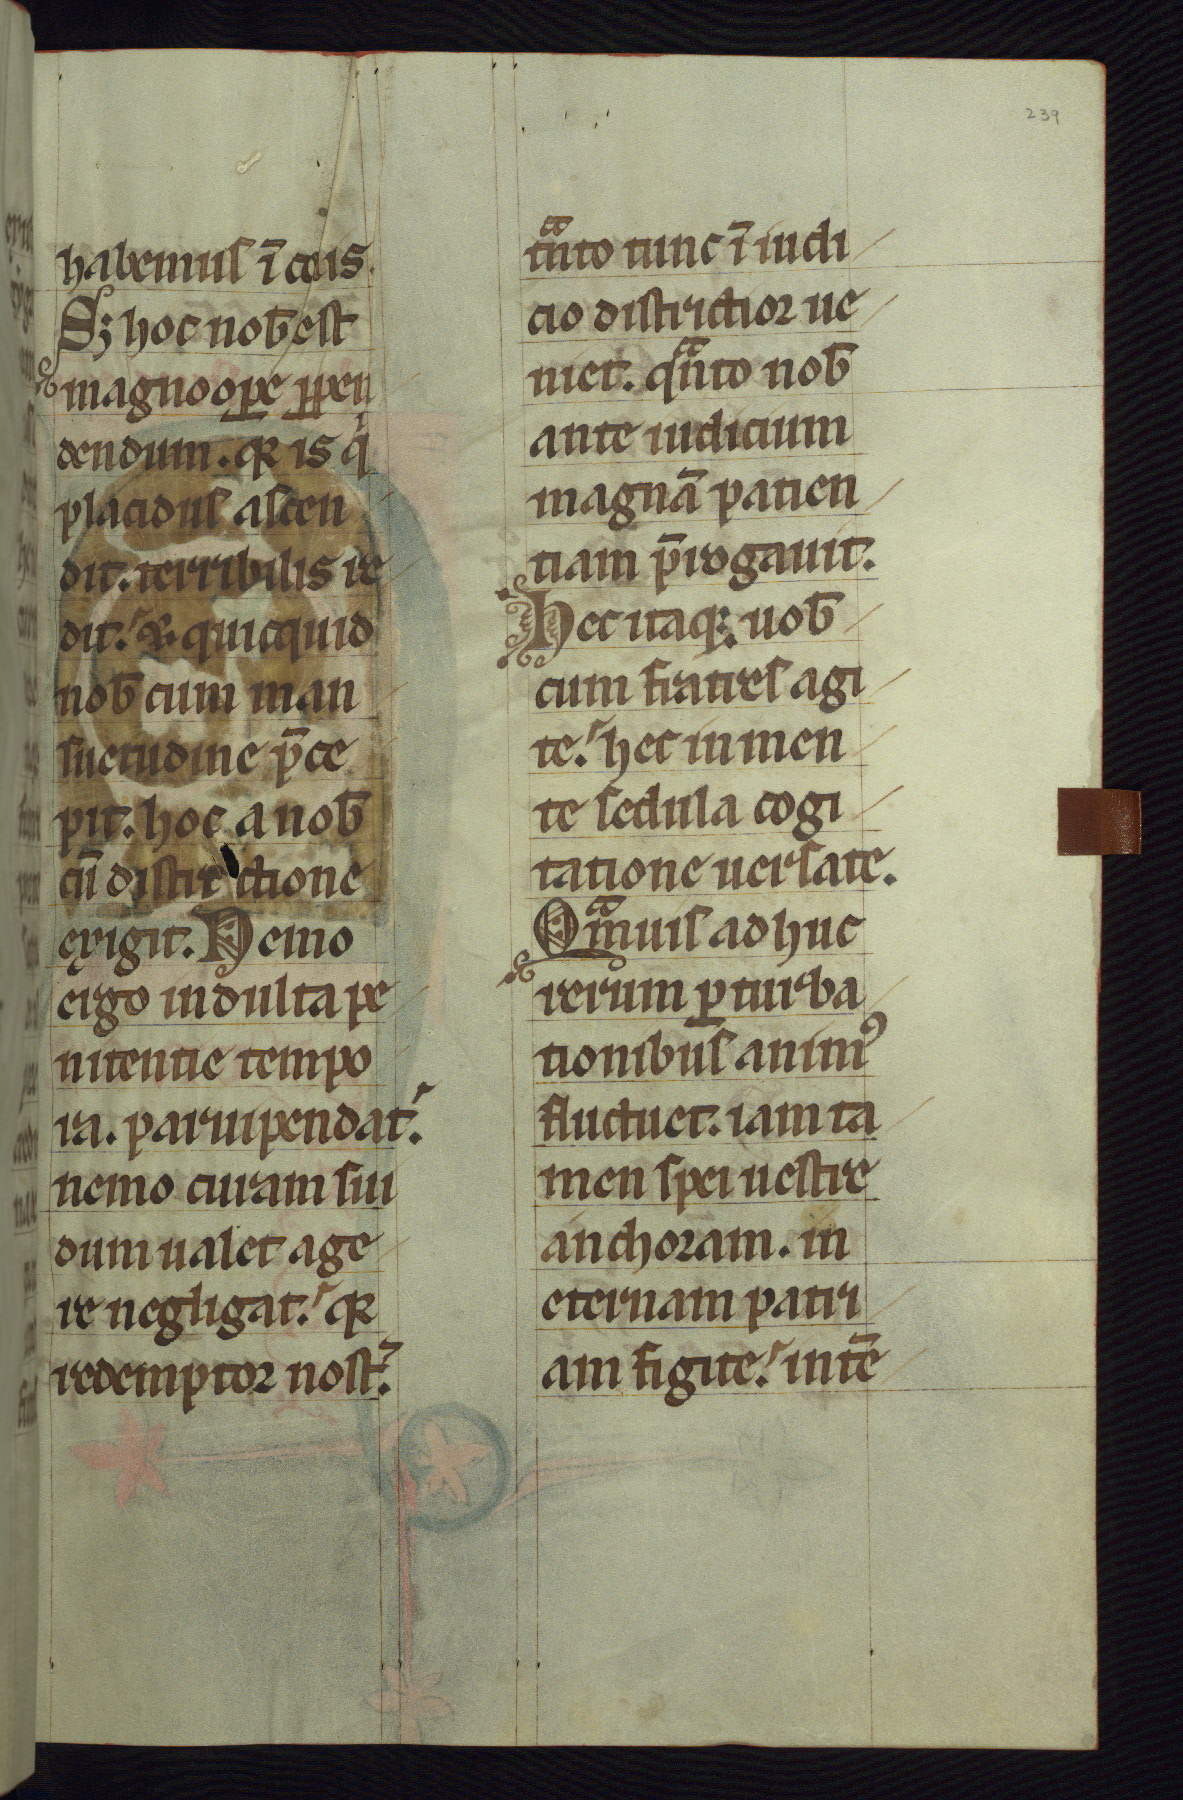 239
habemus ī celis.
Sꝫ hoc nob̄ est
magnoop̲e p̲pen
dendum. qꝛ is q̍
placidus ascen
dit. terribilis re
dit. ⁊ quicquid
nob̄ cum man
suetudine p̄ce
pit. hoc a nob̄
cū districtione
exigit. Nemo
ergo indulta pe
nitentie tempo
ra. paruipendat.
nemo curam sui
dum ualet age
re negligat. qꝛ
redemptor nost̄.
tᷓnto tunc ī iudi
cio districtior ue
niet. qᷓnto nob̄
ante iudicium
magnā patien
tiam p̄rogauit.
Hec itaqꝫ uob̄
cum fratres agi
te. hec in men
te sedula cogi
tatione uersate.
Qᷓmuis adhuc
rerum ꝑturba
tionibus animꝰ
fluctuet. iam ta
men spei uestre
anchoram. in
eternam patri
am figite. intē